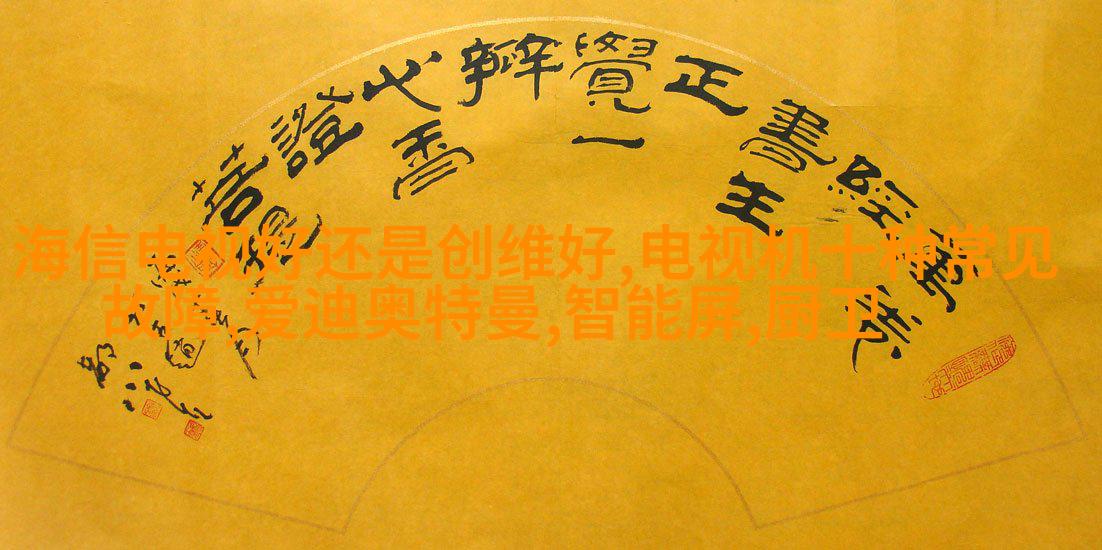 萬卷經書生正覺一瓣心香證菩提
海信电视好还是创维好,电视机十种常见
故障,爱迪奥特曼,智能屏,厨卫